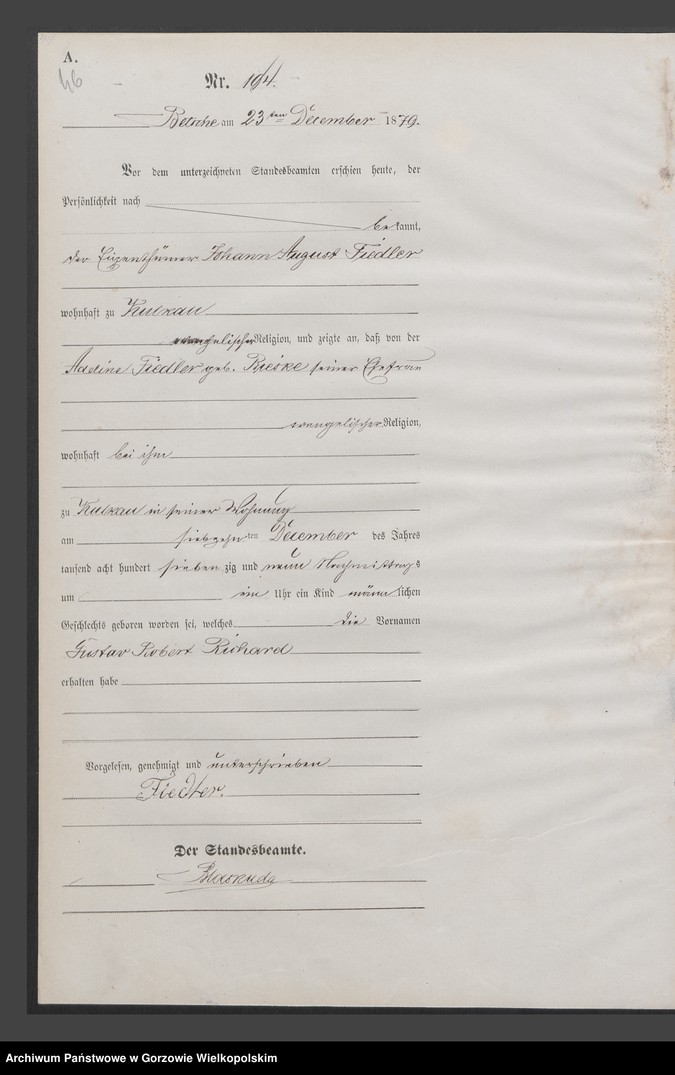 A.
46
Nr. 194.
Betsche am 23ten December 1879.
Vor dem unterzeichneten Standesbeamten erschien heute, der
Persönlichkeit nach
bekannt,
der Eigenthümer Johann August Fiedler
wohnhaft zu Kulkau
evangelischer Religion, und zeigte an, daß von der
Fiedler geb. Rieske seiner Ehefrau
evangelischer Religion,
wohnhaft bei ihm
zu Kulkau in seiner Wohnung
am siebzehnten December des Jahres
tausend acht hundert siebenzig und neun Nachmittags
um ein Uhr ein Kind männlichen
Geschlechts geboren worden sei, welches die Vornamen
Gustav Robert Richard
erhalten habe
Vorgelesen, genehmigt und unterschrieben
Fiedler.
Der Standesbeamte.
Archiwum Państwowe w Gorzowie Wielkopolskim